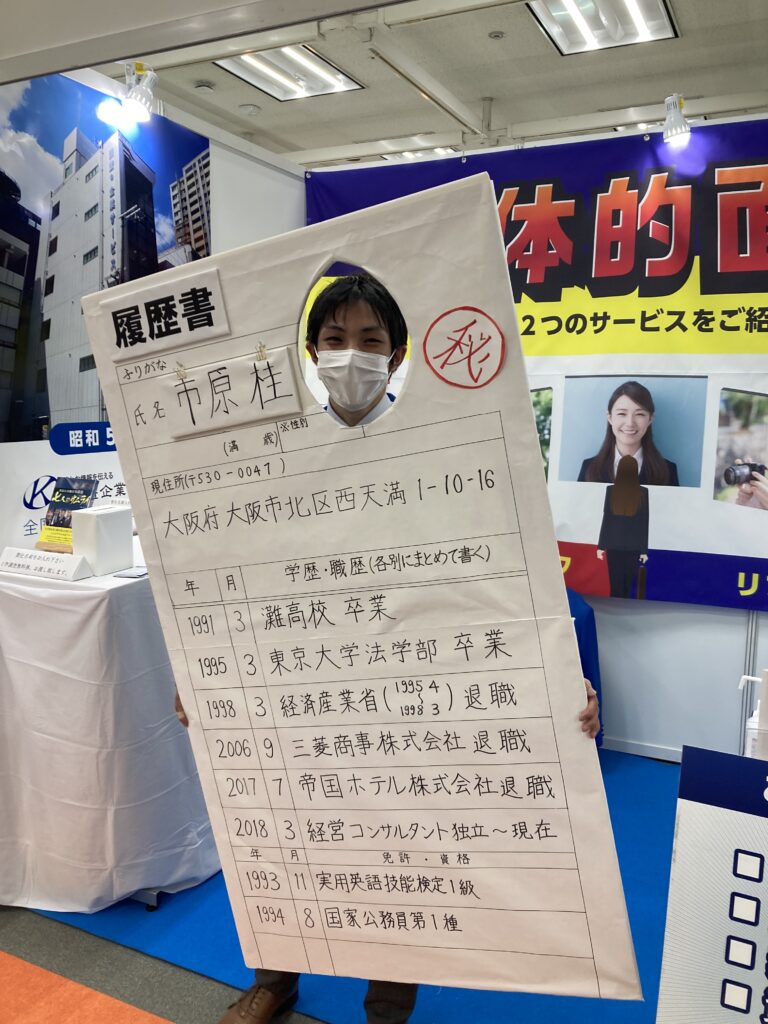 体的面
2つのサービスをご紹
履歴書
ふりがな
氏名
市原 桂
(満 歳)
※性別
現住所(〒530-0047)
大阪府大阪市北区西天満1-10-16
年 月 学歴・職歴(各別にまとめて書く)
1991 3 灘高校 卒業
1995 3 東京大学法学部 卒業
1998 3 経済産業省(1995 4 〜 1998 3)退職
2006 9 三菱商事株式会社 退職
2017 7 帝国ホテル株式会社退職
2018 3 経営コンサルタント独立〜現在
年 月 免許・資格
1993 11 実用英語技能検定1級
1994 8 国家公務員第1種
昭和 5
を伝える
企業
全
リ